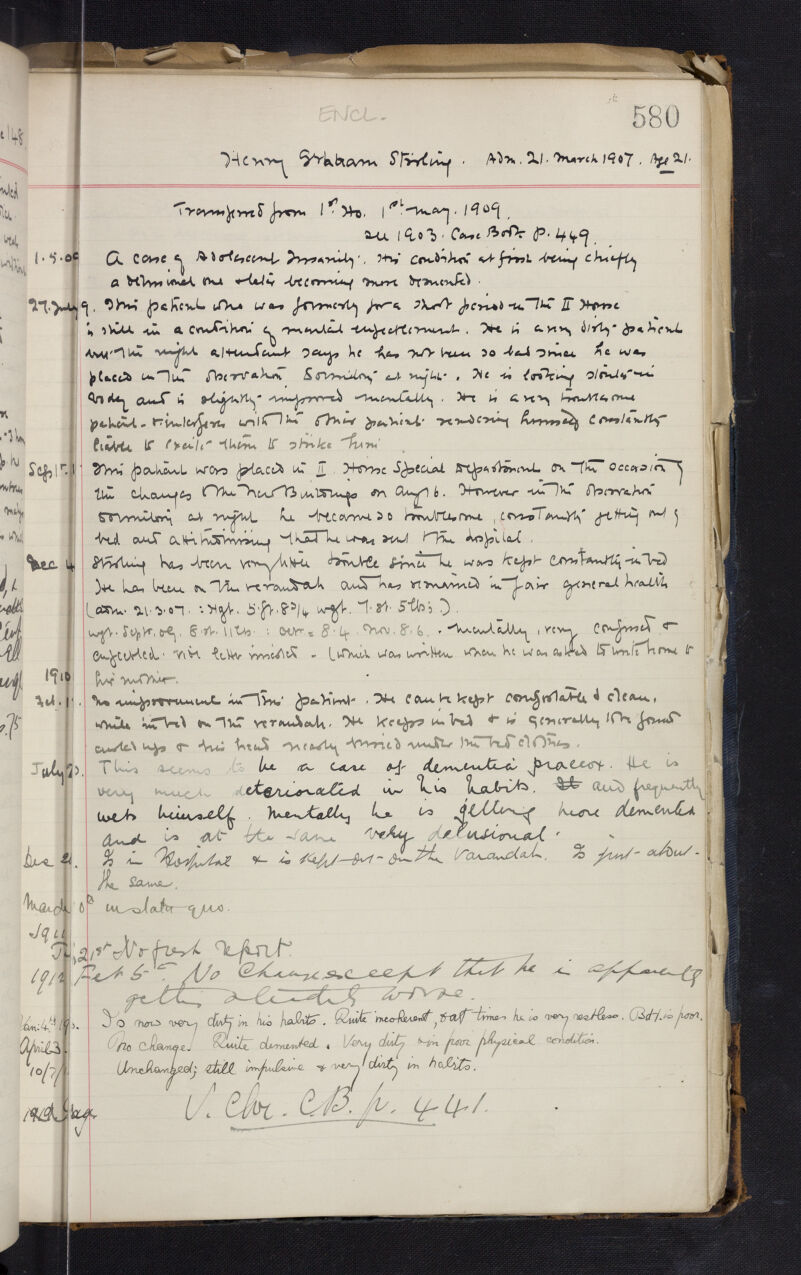 ENCL.
580
Henry Graham Stirling. Adm. 21. March 1907. Age 21.
Transferred from 1st Ho. 1st May. 1909.
see 1903. Case Book p. 449.
1.5.09 A case of Adolescent Insanity. His condition at first being chiefly
a delusional one & later becoming more demented.
27. July 9. This patient who was formerly for a short period in the II House
is still in a condition of mental enfeeblement. He is a very dirty patient
but the night attendant says he has not been so bad since he was
placed in the observation Dormitory at night. He is looking stouter in
body and is slightly improved mentally. He is a very troublesome
patient & interferes with the other patients rendering himself constantly
liable to excite them to strike him.
Sept 1st This patient was placed in II. House Special Department on the occasion of
the changes to the New Buildings on Aug 6. However in the observation
dormitory at night he became so troublesome, constantly getting out of
bed and attitudinising that he was sent to the hospital.
Dec 4 Stirling has been very little trouble since he was kept constantly in bed
He has been on the verandah and has remained in fair general health
(adm. 21.3.07. : Hgt. 5.ft. 8 3/4 wgt. 7.st. 5 lbs.)
wgt. Sept. 09. 8.st. 11 lbs : Oct = 8.4. Nov. 8.6. Mentally, very confused &
enfeebled. vide letter inserted - (which was written when he was asked to write home to
his mother.
1910
Feb. 11. No improvement in this patient. He can be kept comfortable & clean,
while in bed on the verandah. He keeps in bed & is generally to be found
curled up & his head nearly buried under the bed clothes.
July 20. This seems to be a case of dementia praecox. He is
very much deteriorated in his habits. and frequently
wets himself. Mentally he is getting more demented
and is at the same very delusional.
Dec 21. Is in Hospital & is kept out on the Varandah. Is just about
the same.
March 8th in statu quo.
1911
21st No fresh report.
1912 Feb 5th. No Change except that he is apparently
getting steadily worse.
Jan: 4th Is now very dirty in his habits. Quite incoherent, & at times he is very restless. B.H. is poor.
April 3. No change. Quite demented. Very dirty & in poor physical condition.
10/7/ Unchanged; still impulsive & very dirty in habits.
V. Chr. C.B. p. 441.